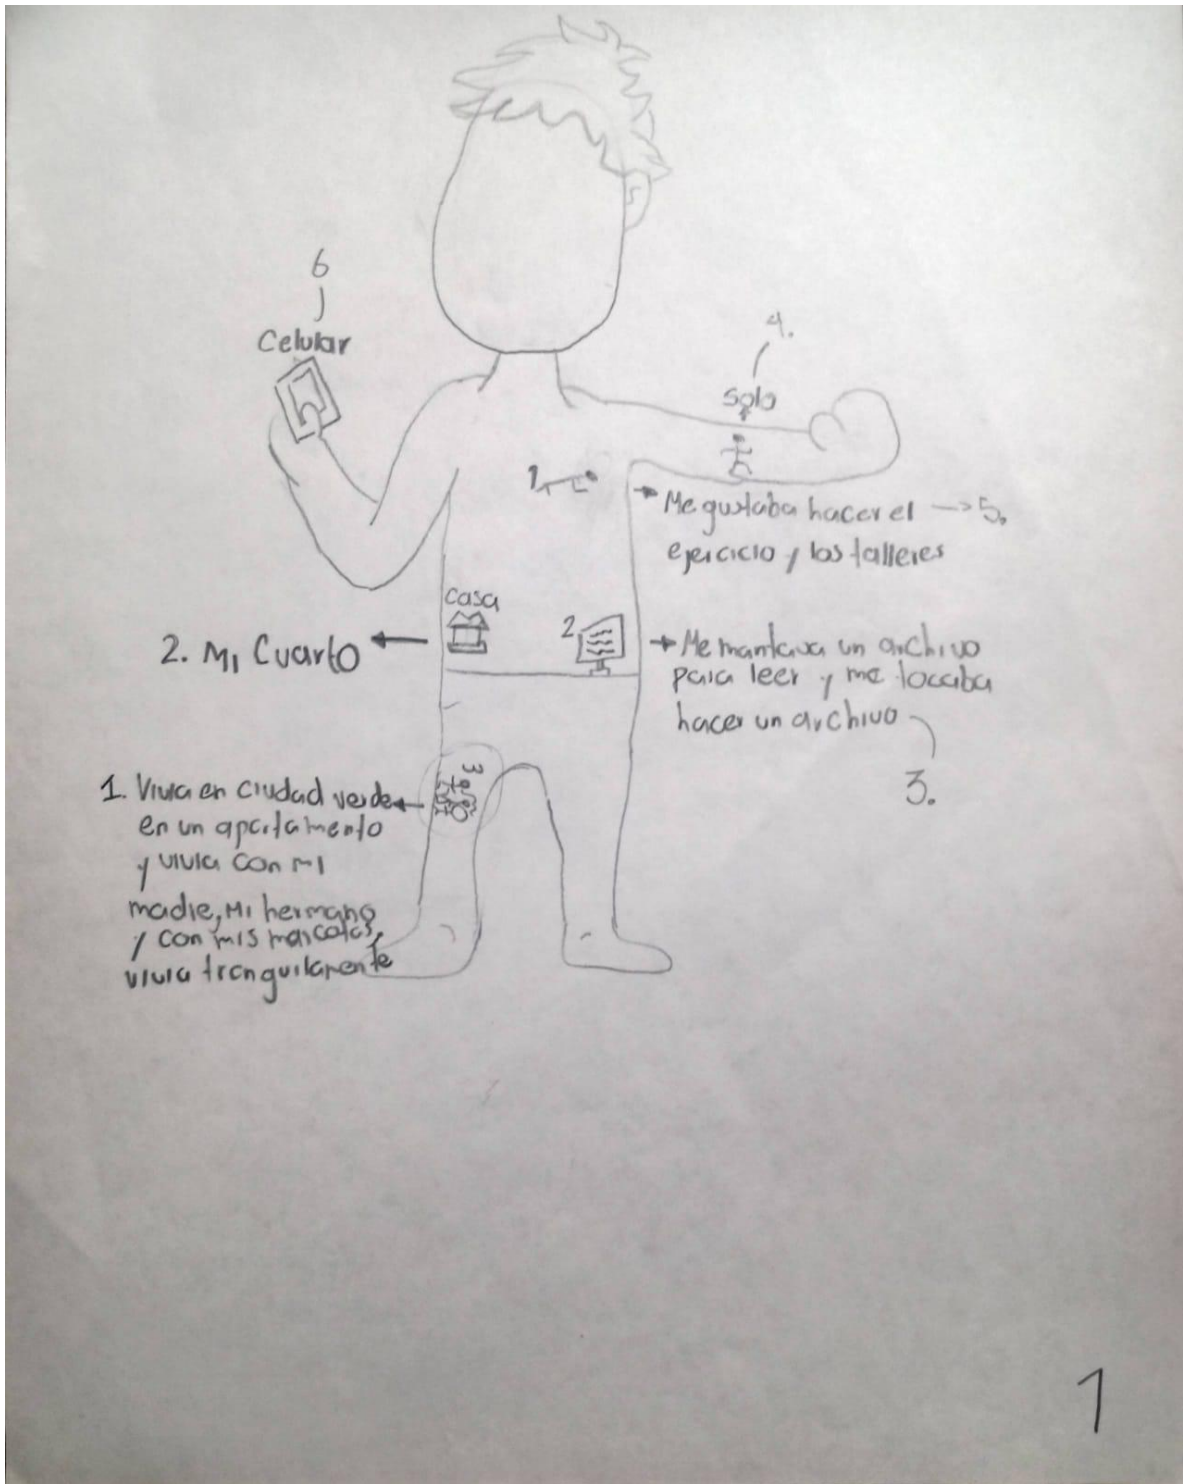 6
Celular
4.
solo
1
Me gustaba hacer el → 5.
ejercicio y los talleres
casa
2. Mi Cuarto
2
Me mandava un archivo
para leer y me tocaba
hacer un archivo
3.
3
1. Vivia en ciudad verde
en un apartamento
y vivia con mi
madre, Mi hermano
y con mis mascotas,
vivia tranquilamente
1